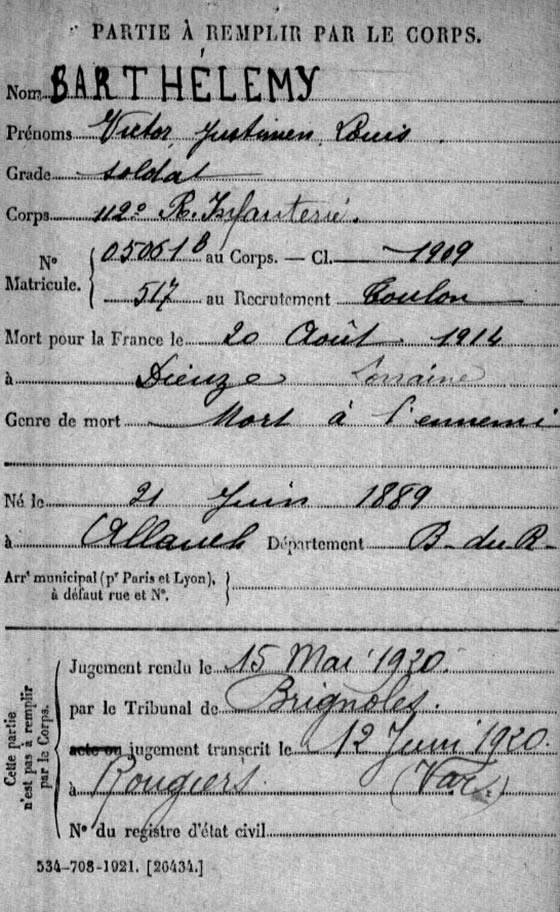 PARTIE À REMPLIR PAR LE CORPS.
Nom BARTHÉLEMY
Prénoms Victor Justinien Louis
Grade soldat
Corps 112e R. Infanterie.
N° Matricule. 05061B au Corps. — Cl. 1909
517 au Recrutement Toulon
Mort pour la France le 20 Août 1914
à Dieuze Lorraine
Genre de mort Mort à l'ennemi
Né le 21 Juin 1889
à Allauch Département B-du-R-
Arrt municipal (pr Paris et Lyon),
à défaut rue et N°.
Cette partie n'est pas à remplir par le Corps.
Jugement rendu le 15 Mai 1920.
par le Tribunal de Brignoles.
acte ou jugement transcrit le 12 Juin 1920.
à Rougiers (Var.)
N° du registre d'état civil
534-708-1921. [20434.]